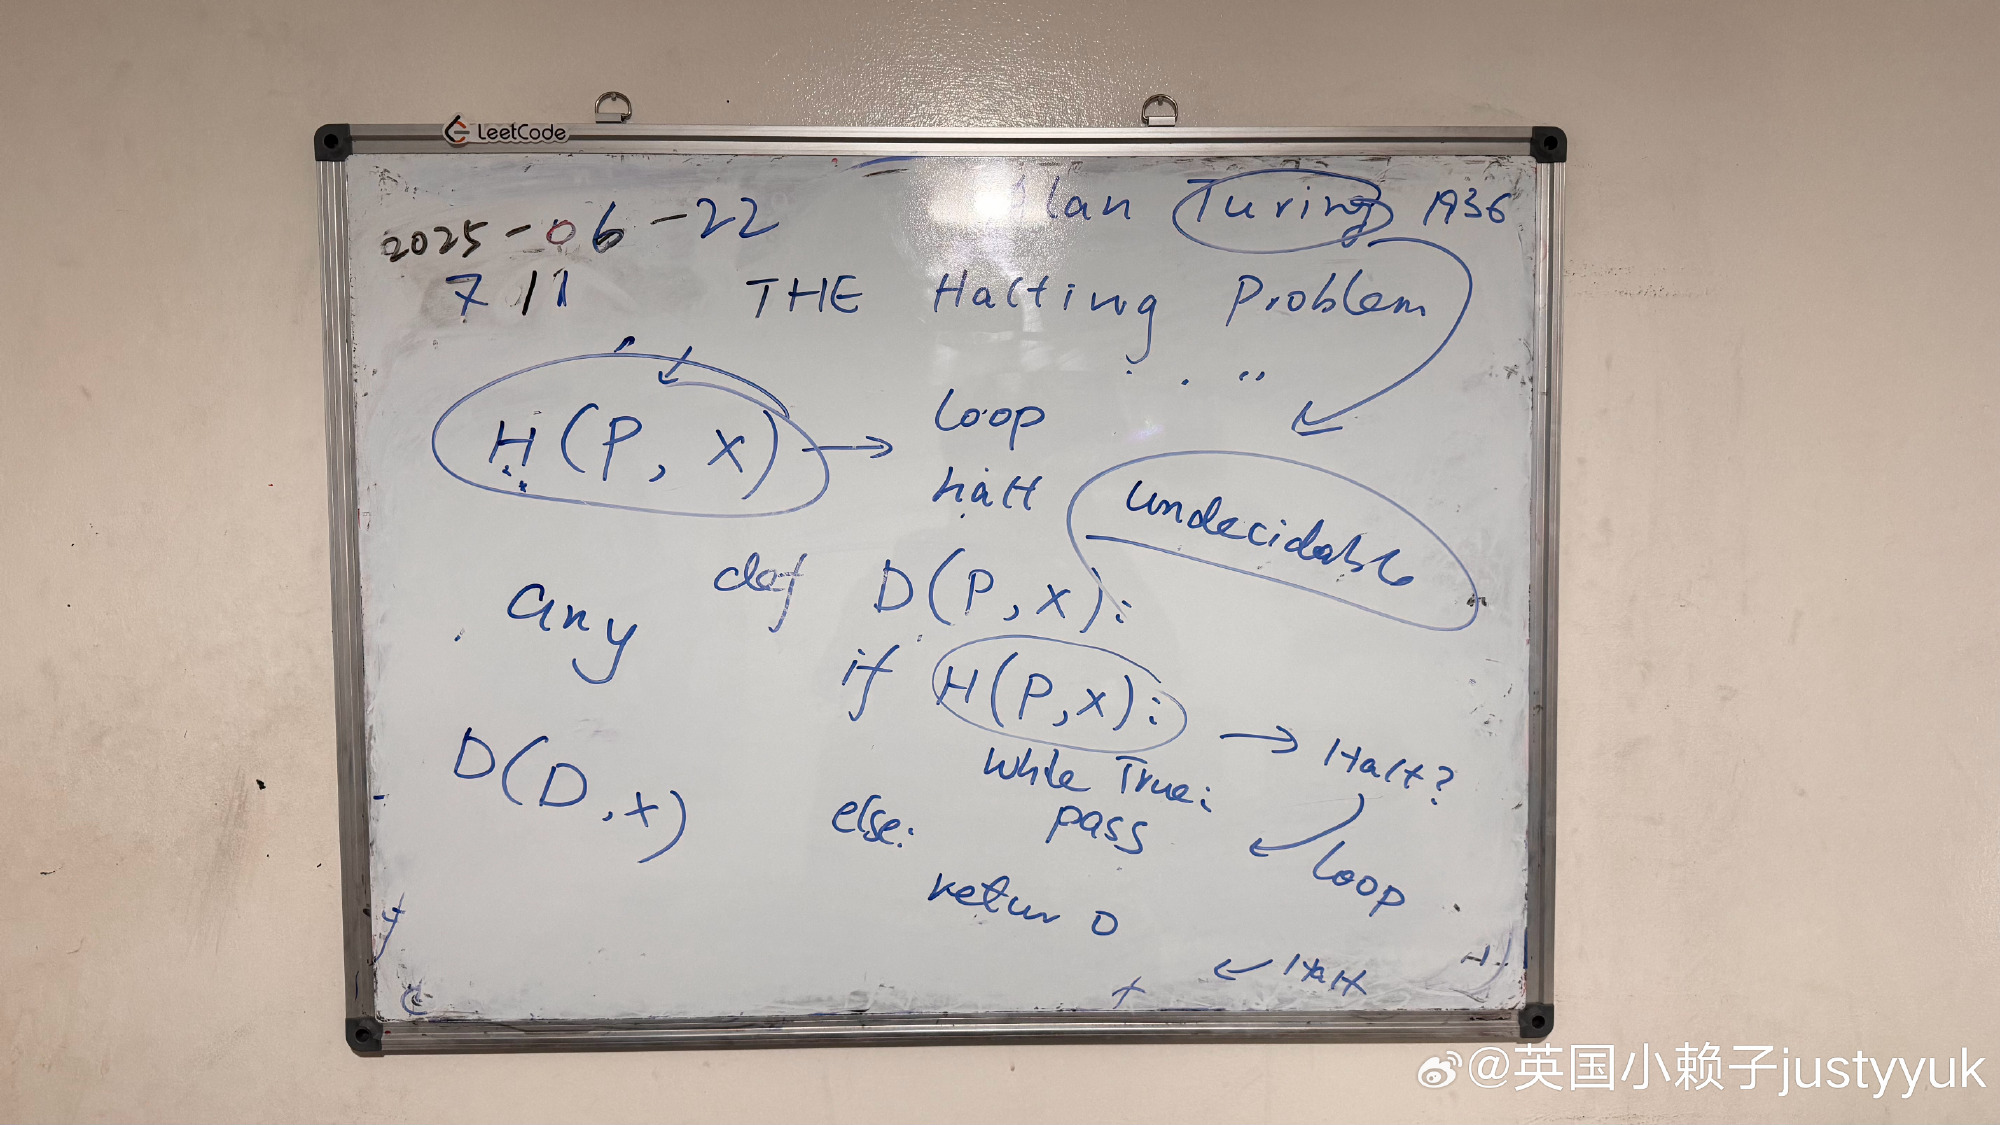 LeetCode
2025-06-22
Alan Turing 1936
7/1
THE Halting Problem
H(P, x) → loop
halt
undecidable
any
def D(P, x):
if H(P, x): → Halt?
while True:
pass
loop
D(D, x)
else:
return 0
Halt
@英国小赖子justyyuk